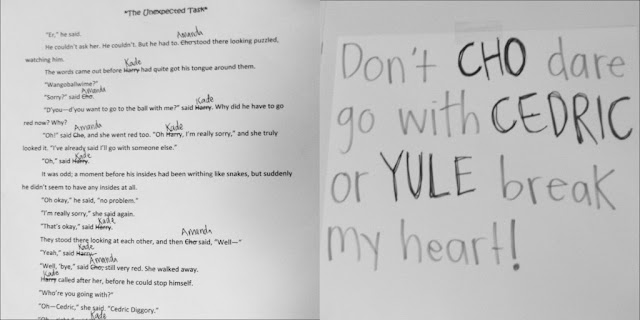 *The Unexpected Task*
"Er," he said.
Amanda
He couldn't ask her. He couldn't. But he had to. Cho stood there looking puzzled,
watching him.
Kade
The words came out before Harry had quite got his tongue around them.
"Wangoballwime?"
Amanda
"Sorry?" said Cho.
Kade
"D'you—d'you want to go to the ball with me?" said Harry. Why did he have to go
red now? Why?
Amanda Kade
"Oh!" said Cho, and she went red too. "Oh Harry, I'm really sorry," and she truly
looked it. "I've already said I'll go with someone else."
Kade
"Oh," said Harry.
It was odd; a moment before his insides had been writhing like snakes, but suddenly
he didn't seem to have any insides at all.
"Oh okay," he said, "no problem."
"I'm really sorry," she said again.
Kade
"That's okay," said Harry.
Amanda
They stood there looking at each other, and then Cho said, "Well—"
Kade
"Yeah," said Harry.
Amanda
"Well, 'bye," said Cho, still very red. She walked away.
Kade
Harry called after her, before he could stop himself.
"Who're you going with?"
"Oh—Cedric," she said. "Cedric Diggory."
Kade
Don't CHO dare
go with CEDRIC
or YULE break
my heart!